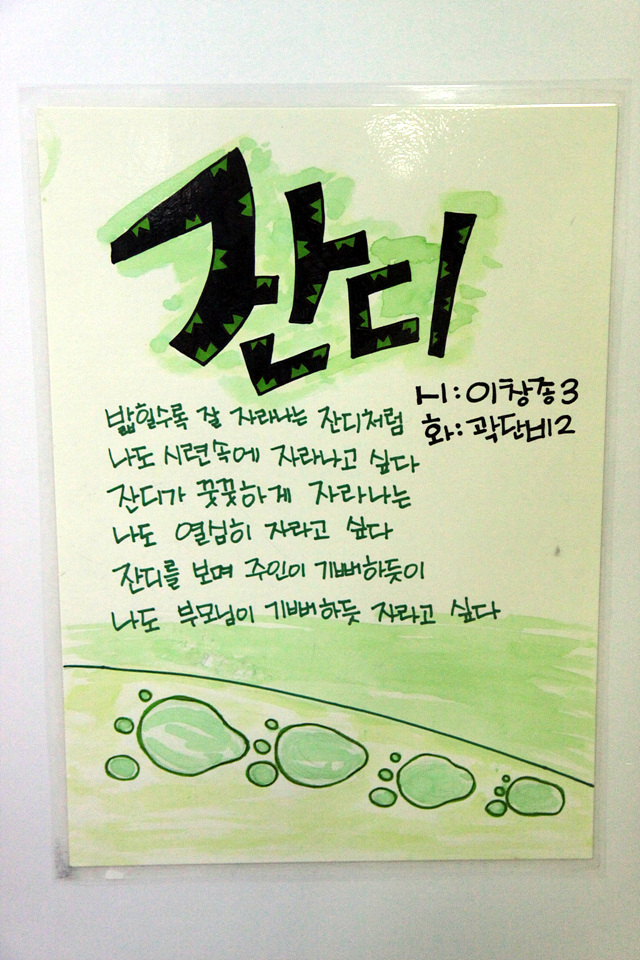 잔디
시:이창종3
화:곽단비2
밟힐수록 잘 자라나는 잔디처럼
나도 시련속에 자라나고 싶다
잔디가 꿋꿋하게 자라나는
나도 열심히 자라고 싶다
잔디를 보며 주인이 기뻐하듯이
나도 부모님이 기뻐하듯 자라고 싶다